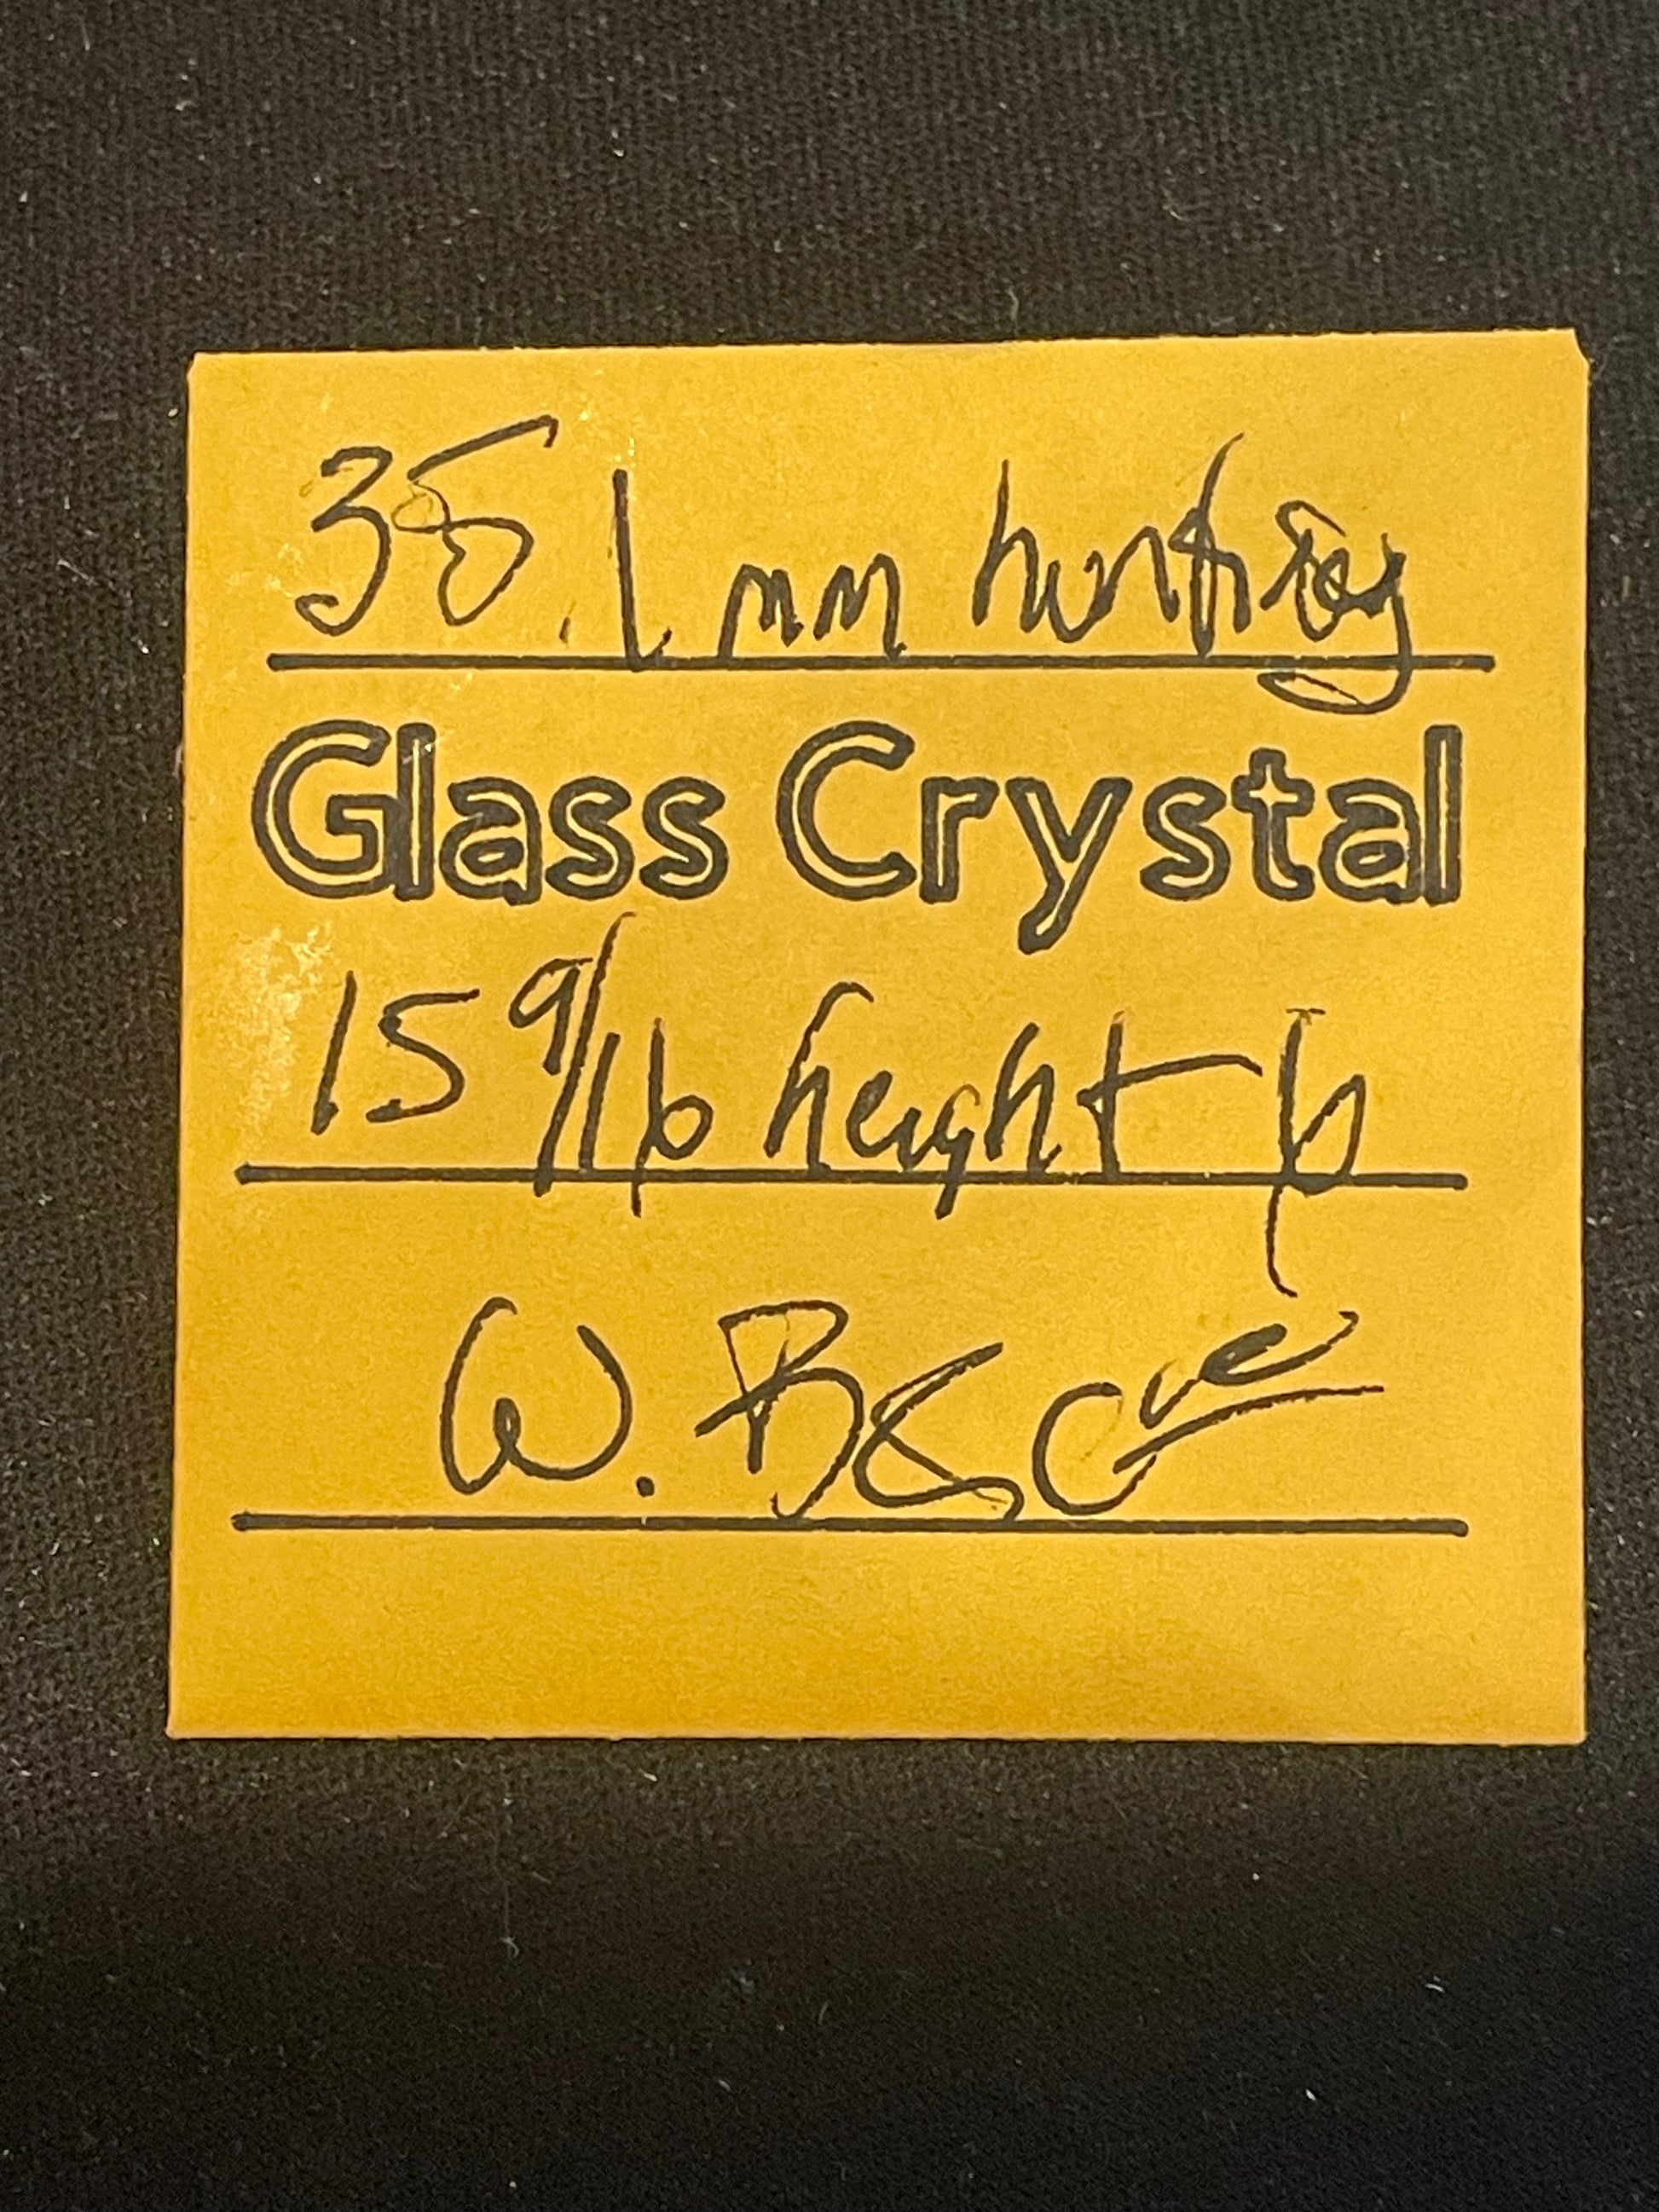 35.1 mm hunting
Glass Crystal
15 9/16 height
W. B